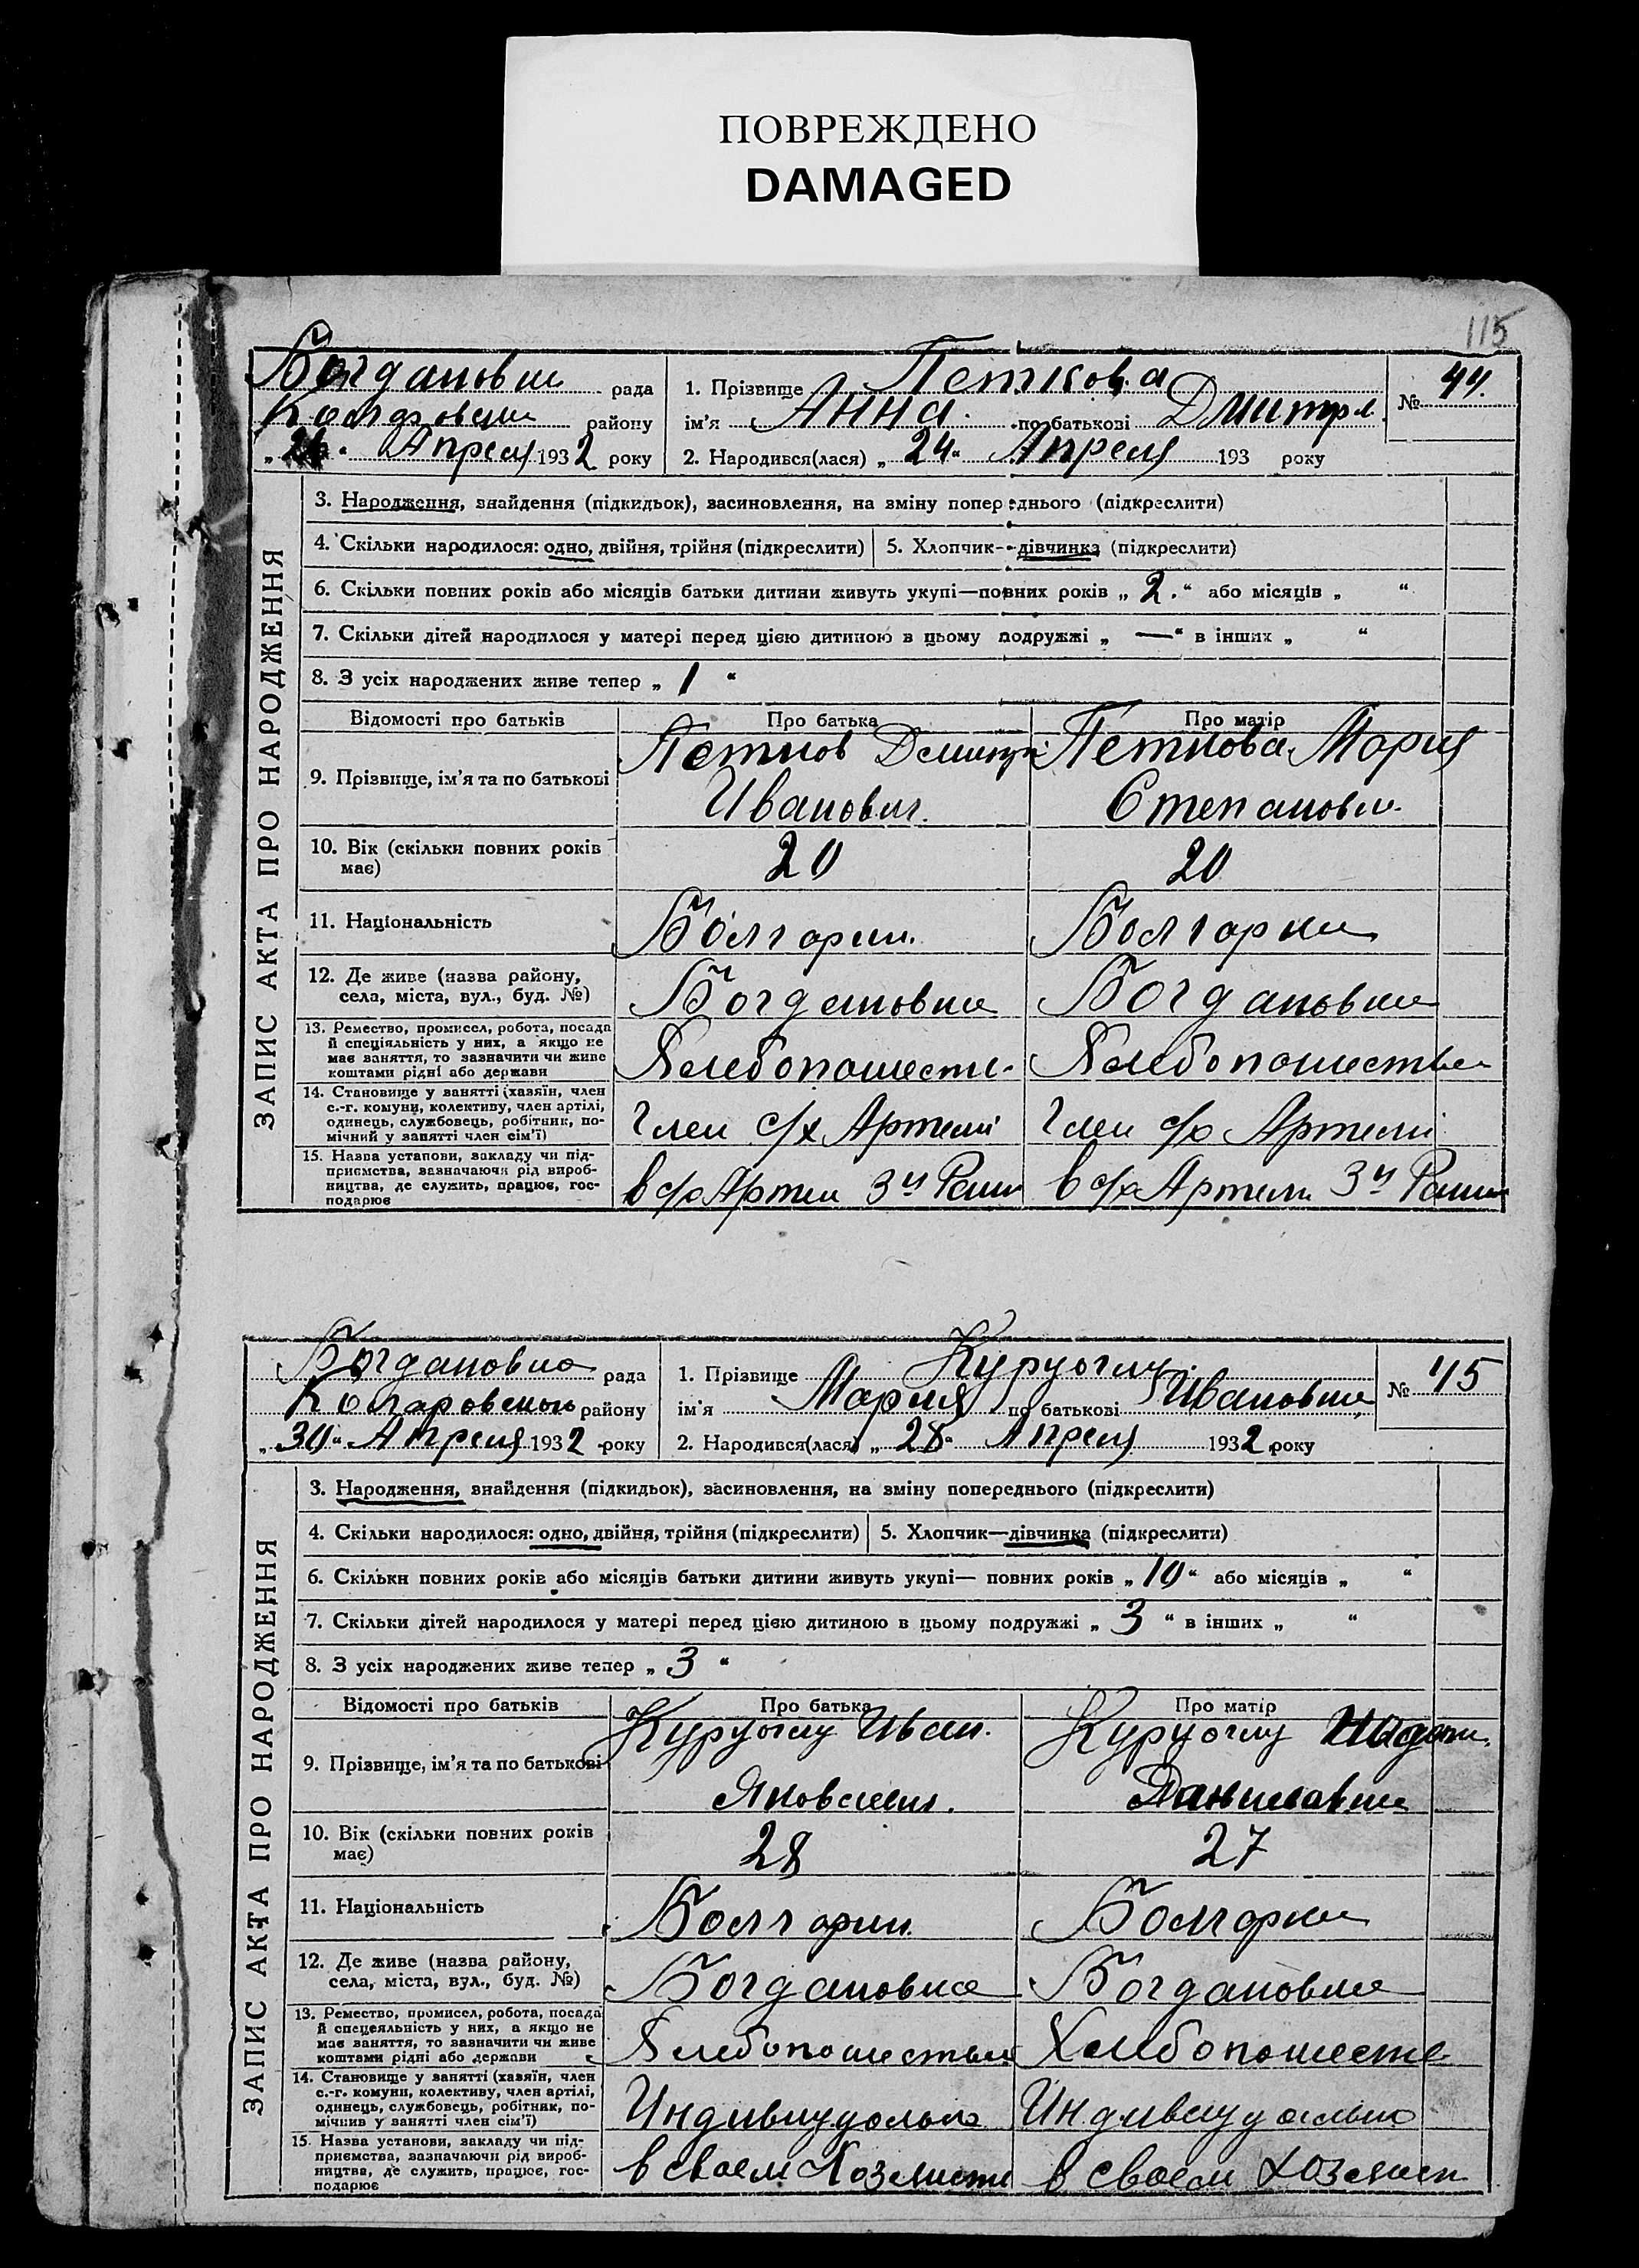 ПОВРЕЖДЕНО
DAMAGED
115
Богдановки рада
району
Апреля 1932 року
1. Прізвище Петкова
ім'я Анна по батькові Дмитр.
2. Народився(лася) „ 24 “ Апреля 193 року
№ 44.
ЗАПИС АКТА ПРО НАРОДЖЕННЯ
3. Народження, знайдення (підкидьок), засиновлення, на зміну попереднього (підкреслити)
4. Скільки народилося: одно, двійня, трійня (підкреслити)
5. Хлопчик—дівчинка (підкреслити)
6. Скільки повних років або місяців батьки дитини живуть укупі—повних років „ 2. “ або місяців „ “
7. Скільки дітей народилося у матері перед цією дитиною в цьому подружжі „ — “ в інших „ “
8. З усіх народжених живе тепер „ 1 “
Відомості про батьків
Про батька
Про матір
9. Прізвище, ім'я та по батькові
Петков Дмитр.
Иванович.
Петкова Мария
Степановн.
10. Вік (скільки повних років
має)
20
20
11. Національність
Болгарин.
Болгарки
12. Де живе (назва району,
села, міста, вул., буд. №)
Богдановка
Богдановки
13. Ремество, промисел, робота, посада
й спеціяльність у них, а якщо не
має заняття, то зазначити чи живе
коштами рідні або держави
Хлебопашест.
Хлебопашество
14. Становище у занятті (хазяїн, член
с.-г. комуни, колективу, член артілі,
одинець, службовець, робітник, по-
мічний у занятті член сім'ї)
Член с/х Артели
Член с/х Артели
15. Назва установи, закладу чи під-
приємства, зазначаючи рід вироб-
ництва, де служить, працює, гос-
подарює
в с/х Артели 3й
в с/х Артели 3й
Богдановка рада
Коларовского району
„ 30 “ Апреля 1932 року
1. Прізвище Куруоглу
ім'я Мария по батькові Ивановна
2. Народився(лася) „ 28 “ Апреля 1932 року
№ 45
ЗАПИС АКТА ПРО НАРОДЖЕННЯ
3. Народження, знайдення (підкидьок), засиновлення, на зміну попереднього (підкреслити)
4. Скільки народилося: одно, двійня, трійня (підкреслити)
5. Хлопчик—дівчинка (підкреслити)
6. Скільки повних років або місяців батьки дитини живуть укупі— повних років „ 10 “ або місяців „ “
7. Скільки дітей народилося у матері перед цією дитиною в цьому подружжі „ 3 “ в інших „ “
8. З усіх народжених живе тепер „ 3 “
Відомості про батьків
Про батька
Про матір
9. Прізвище, ім'я та по батькові
Куруоглу Иван.
Яковлевич.
Куруоглу
10. Вік (скільки повних років
має)
28
27
11. Національність
Болгарин.
Болгарки
12. Де живе (назва району,
села, міста, вул., буд. №)
Богдановка
Богдановке
13. Ремество, промисел, робота, посада
й спецеяльність у них, а якщо не
має заняття, то зазначити чи живе
коштами рідні або держави
Хлебопашество
Хлебопашеств
14. Становище у занятті (хазяїн, член
с.-г. комуни, колективу, член артілі,
одинець, службовець, робітник, по-
мічнив у занятті член сім'ї)
Индивидуально
Индивидуально
15. Назва установи, закладу чи під-
приємства, зазначаючи рід вироб-
ництва, де служить, працює, гос-
подарює
в своем
в своем